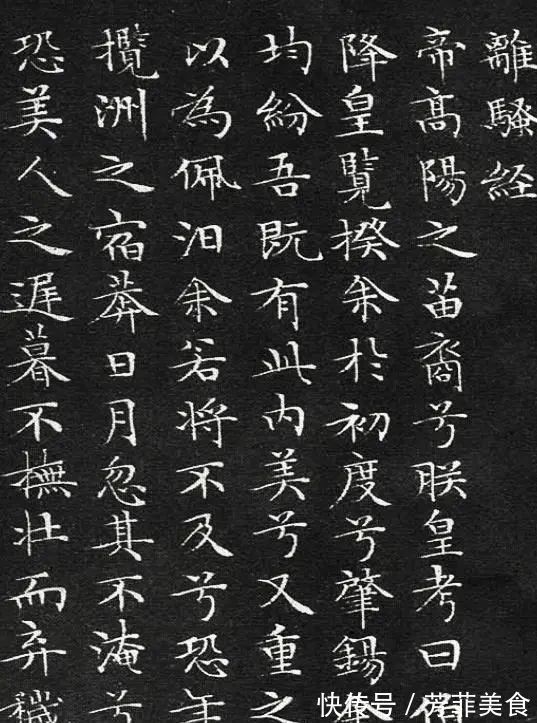 離騷経
帝高陽之苗裔兮朕皇考曰
降皇覽揆余於初度兮肇錫余
均紛吾既有此内美兮又重之
以為佩汨余若將不及兮恐年
攬洲之宿莽日月忽其不淹兮
恐美人之遲暮不撫壯而弃穢
快传号/芳菲美食